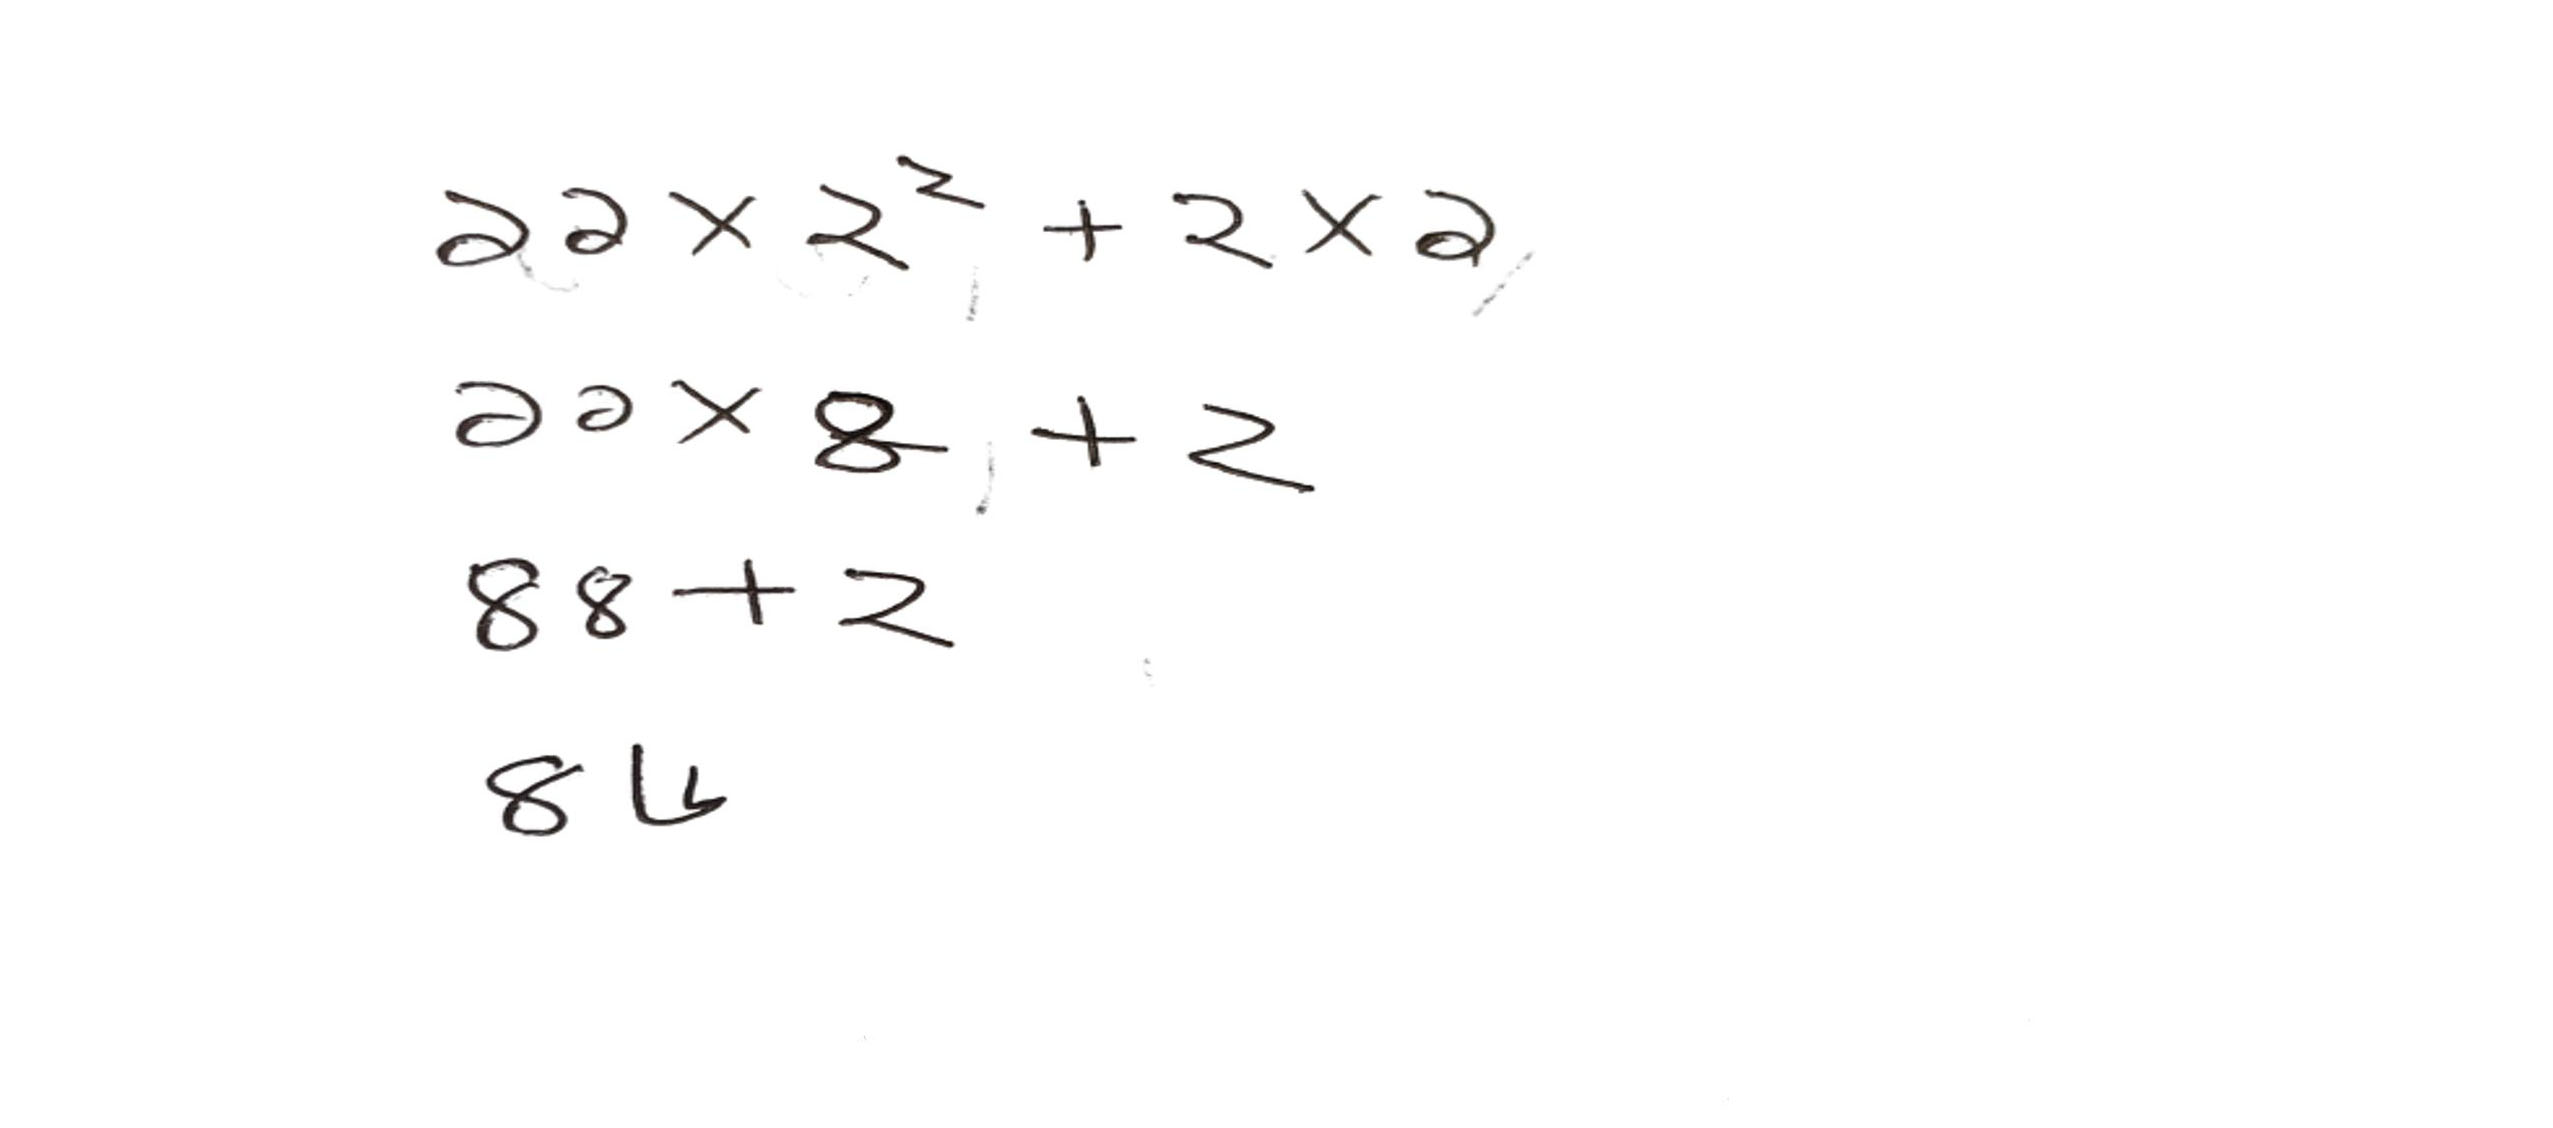 22 × 2² + 2 × 2
22 × 8 + 2
88 + 2
84